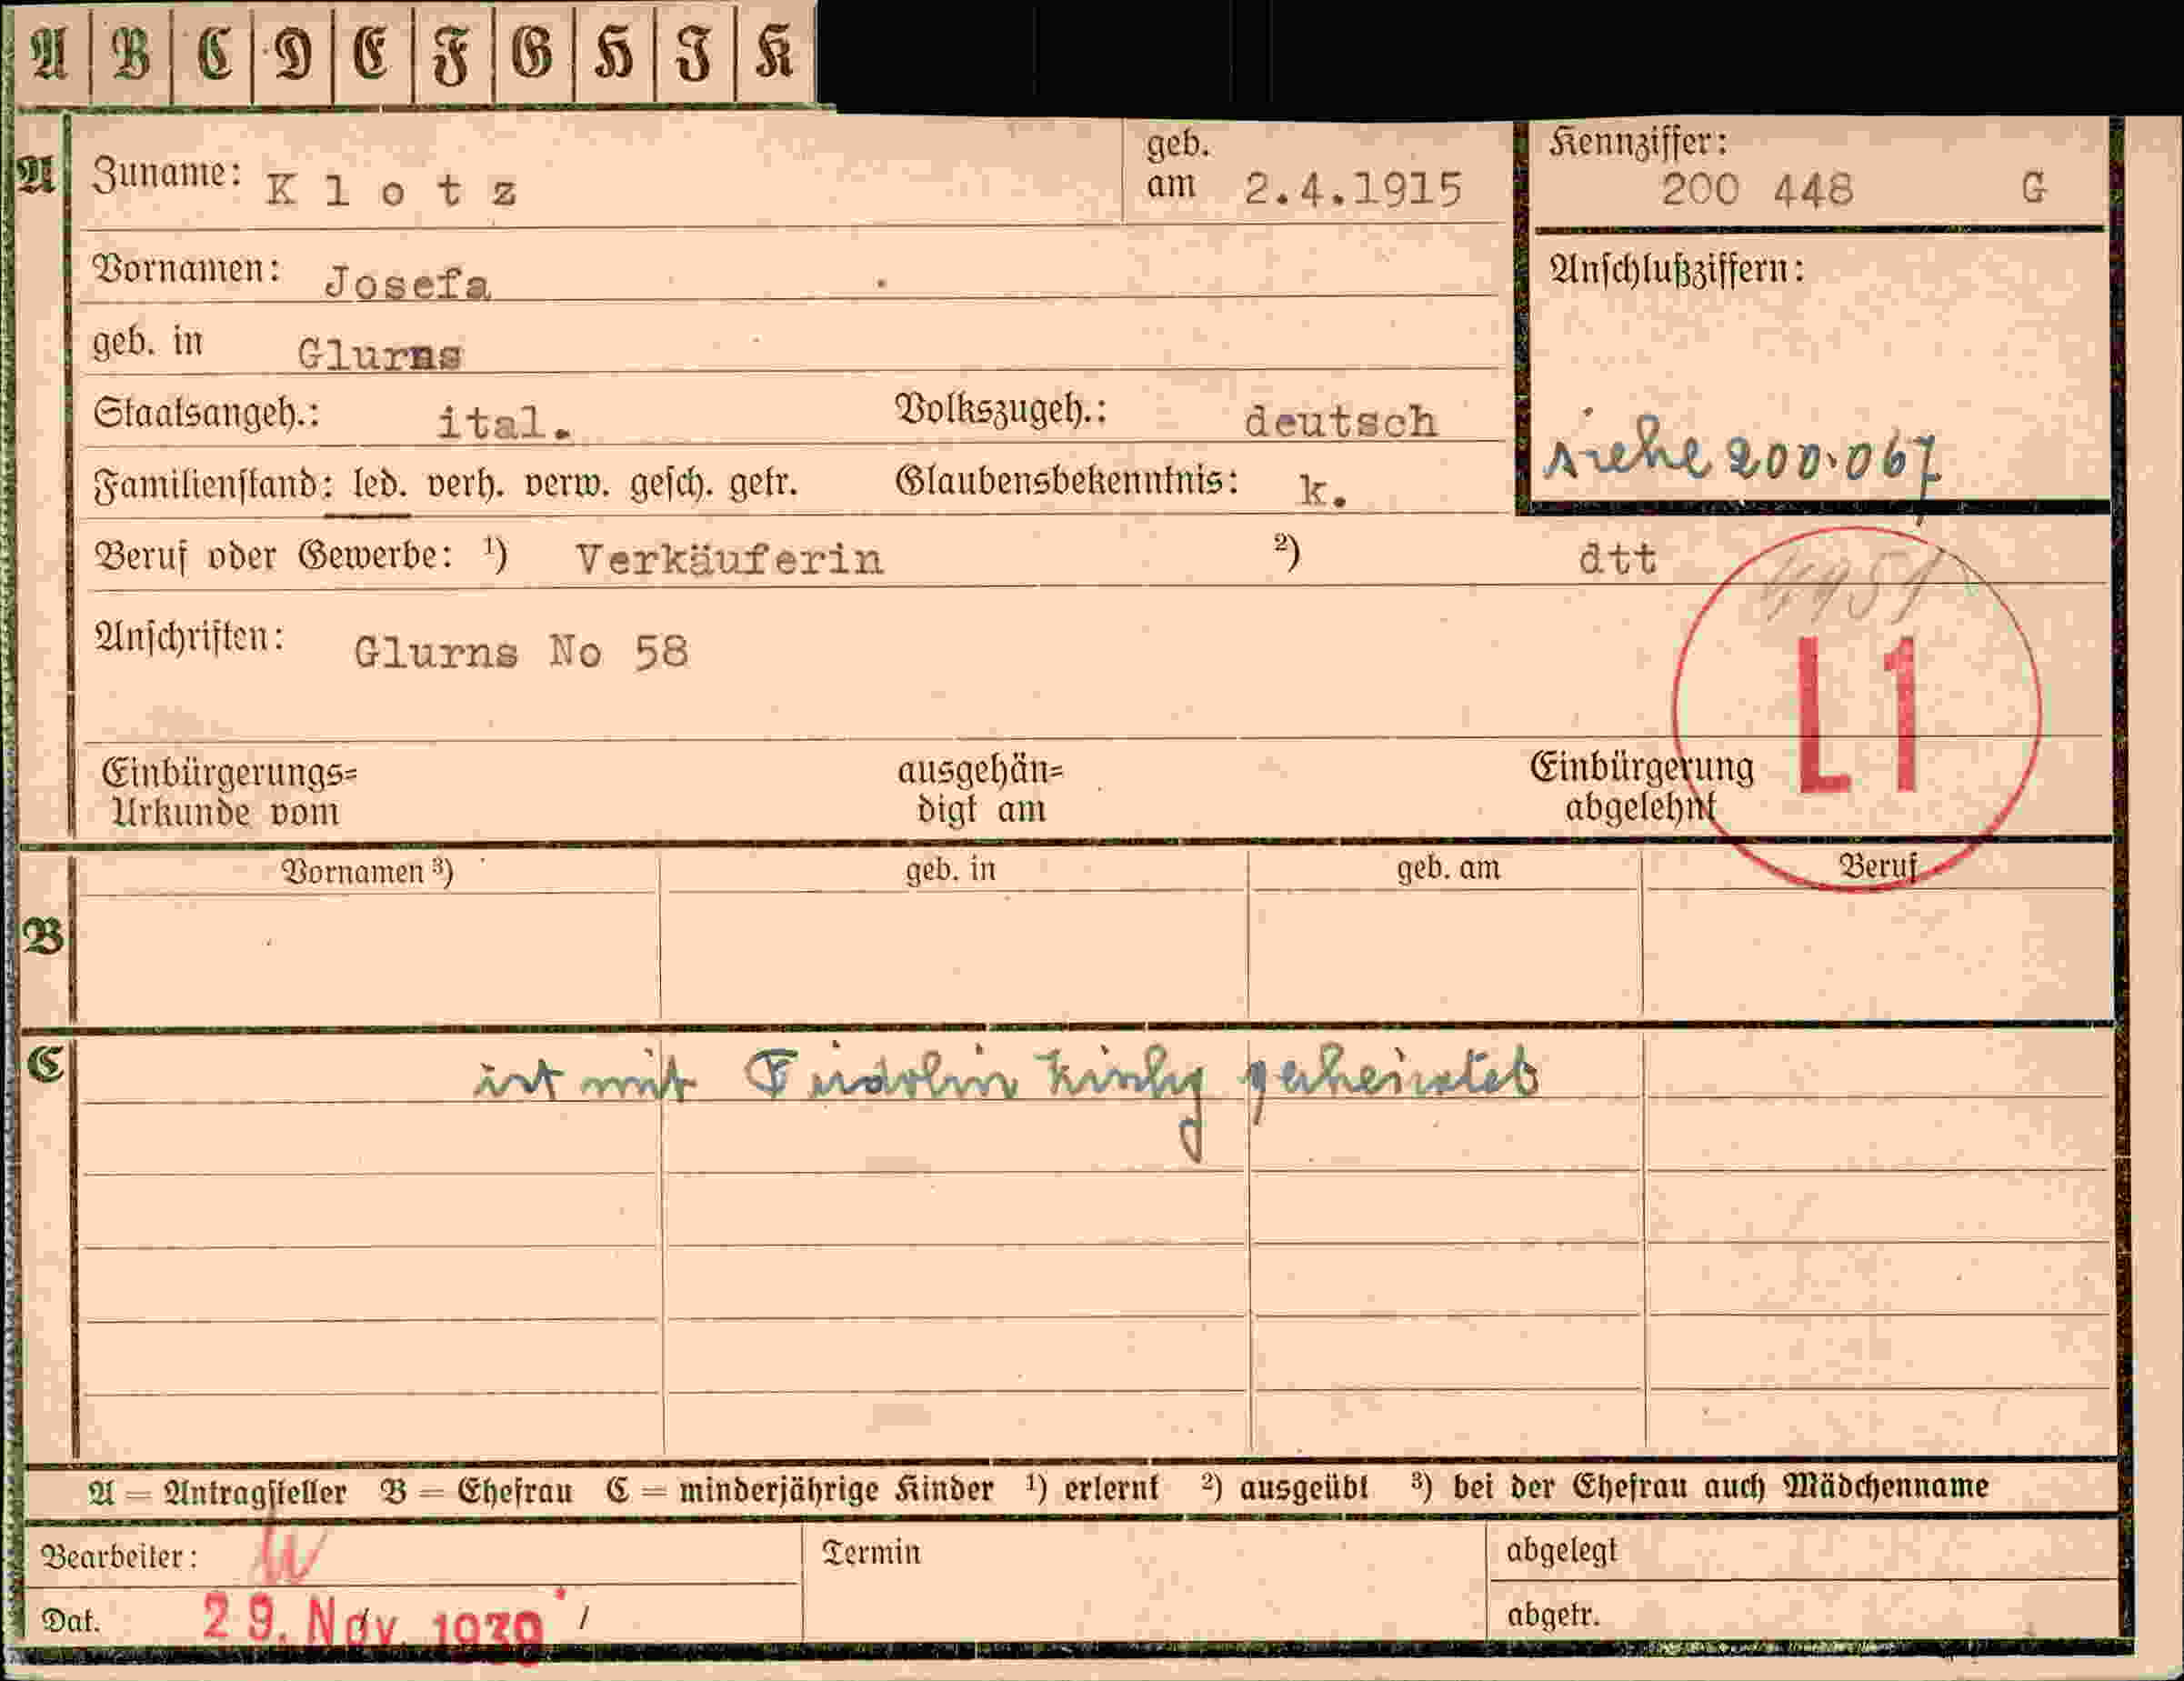 A B C D E F G H I K
A Zuname: Klotz geb. am 2.4.1915 Kennziffer: 200 448 G
Vornamen: Josefa Anschlußziffern:
geb. in Glurns
Staatsangeh.: ital. Volkszugeh.: deutsch
siehe 200.067
Familienstand: led. verh. verw. gesch. getr. Glaubensbekenntnis: k.
Beruf oder Gewerbe: ¹) Verkäuferin ²) dtt
Anschriften: Glurns No 58
L1
Einbürgerungs= ausgehän= Einbürgerung
Urkunde vom digt am abgelehnt
Vornamen ³) geb. in geb. am Beruf
B
C ist mit
A = Antragsteller B = Ehefrau C = minderjährige Kinder ¹) erlernt ²) ausgeübt ³) bei der Ehefrau auch Mädchenname
Bearbeiter: Termin abgelegt
Dat. 29. Nov. 1939 abgetr.